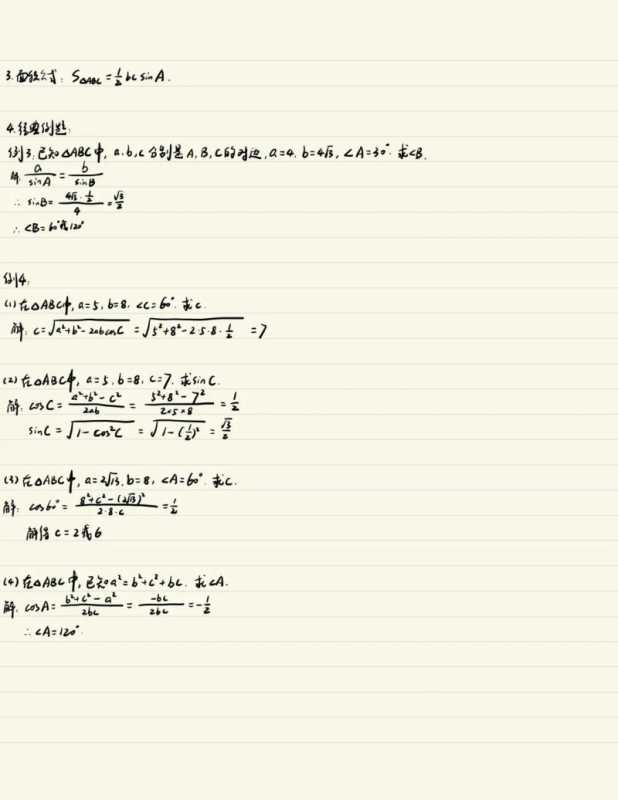 3.面积公式: S△ABC = 1/2 bc sinA.
4.经典例题:
例3.已知△ABC中, a.b.c分别是A,B,C的对边, a=4. b=4√3, ∠A=30°. 求∠B.
解. a/sinA = b/sinB
∴ sinB = (4√3·1/2)/4 = √3/2
∴ ∠B=60°或120°
例4.
(1)在△ABC中, a=5, b=8. ∠C=60°. 求c.
解: c=√(a²+b²-2abcosC) = √(5²+8²-2·5·8·1/2) = 7
(2)在△ABC中, a=5, b=8, c=7. 求sinC.
解: cosC = (a²+b²-c²)/2ab = (5²+8²-7²)/(2×5×8) = 1/2
sinC = √(1-cos²C) = √(1-(1/2)²) = √3/2
(3)在△ABC中, a=2√13, b=8, ∠A=60°. 求c.
解: cos60° = (8²+c²-(2√13)²)/(2·8·c) = 1/2
解得 c=2或6
(4)在△ABC中, 已知a²=b²+c²+bc. 求∠A.
解. cosA = (b²+c²-a²)/2bc = -bc/2bc = -1/2
∴ ∠A=120°.